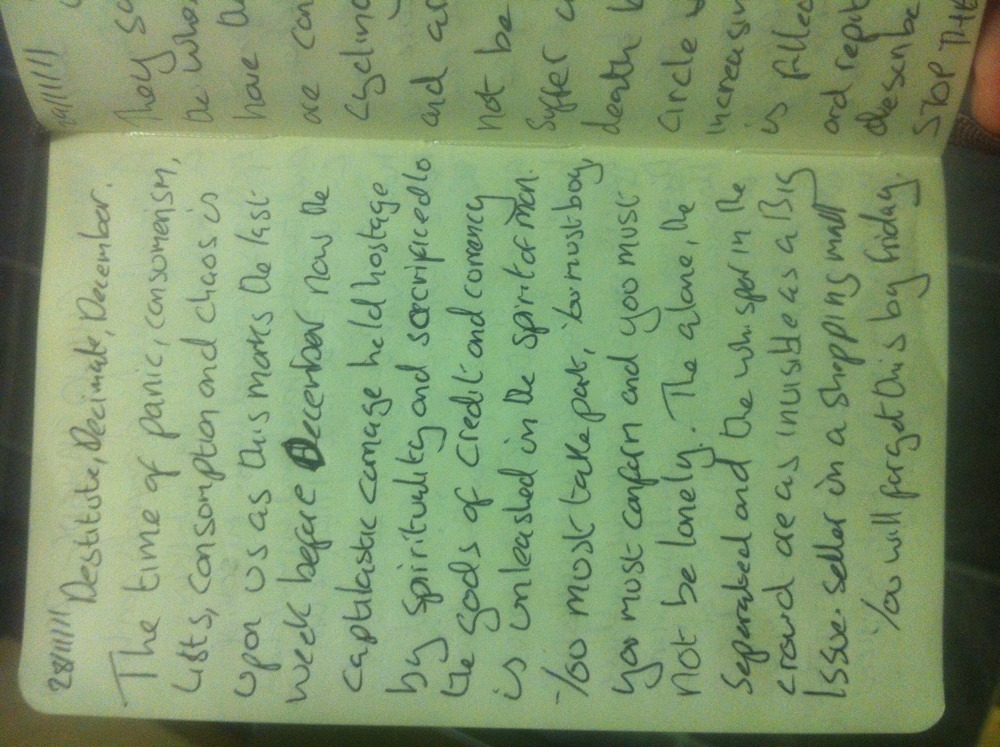 28/11/11 Destitute, Decimate, December.
The time of panic, consumerism,
Lists, consumption and chaos is
upon us as this marks the last
week before December now the
captilistic carnage held hostage
by spirituality and sacrificed to
the gods of credit and currency
is unleashed in the spirit of man.
You must take part, You must buy,
you must conform and you must
not be lonely. The alone, the
separated and the whisper in the
crowd are as invisible as a Big
Issue seller in a shopping mall
You will forget this by friday.
/11/11
They
the
have
are
cycling
and
not be
suffer
death
circle
increasin
is filled
and
describe
STOP